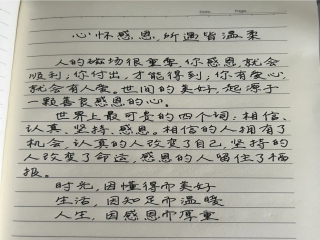 心怀感恩,所遇皆温柔
人的磁场很重要,你感恩,就会
顺利;你付出,才能得到;你有爱心,
就会有人爱。世间的美好,起源于
一颗善良感恩的心。
世界上最可贵的四个词:相信、
认真、坚持、感恩。相信的人拥有了
机会,认真的人改变了自己,坚持的
人改变了命运,感恩的人留住了福
报。
时光,因懂得而美好
生活,因知足而温暖
人生,因感恩而厚重